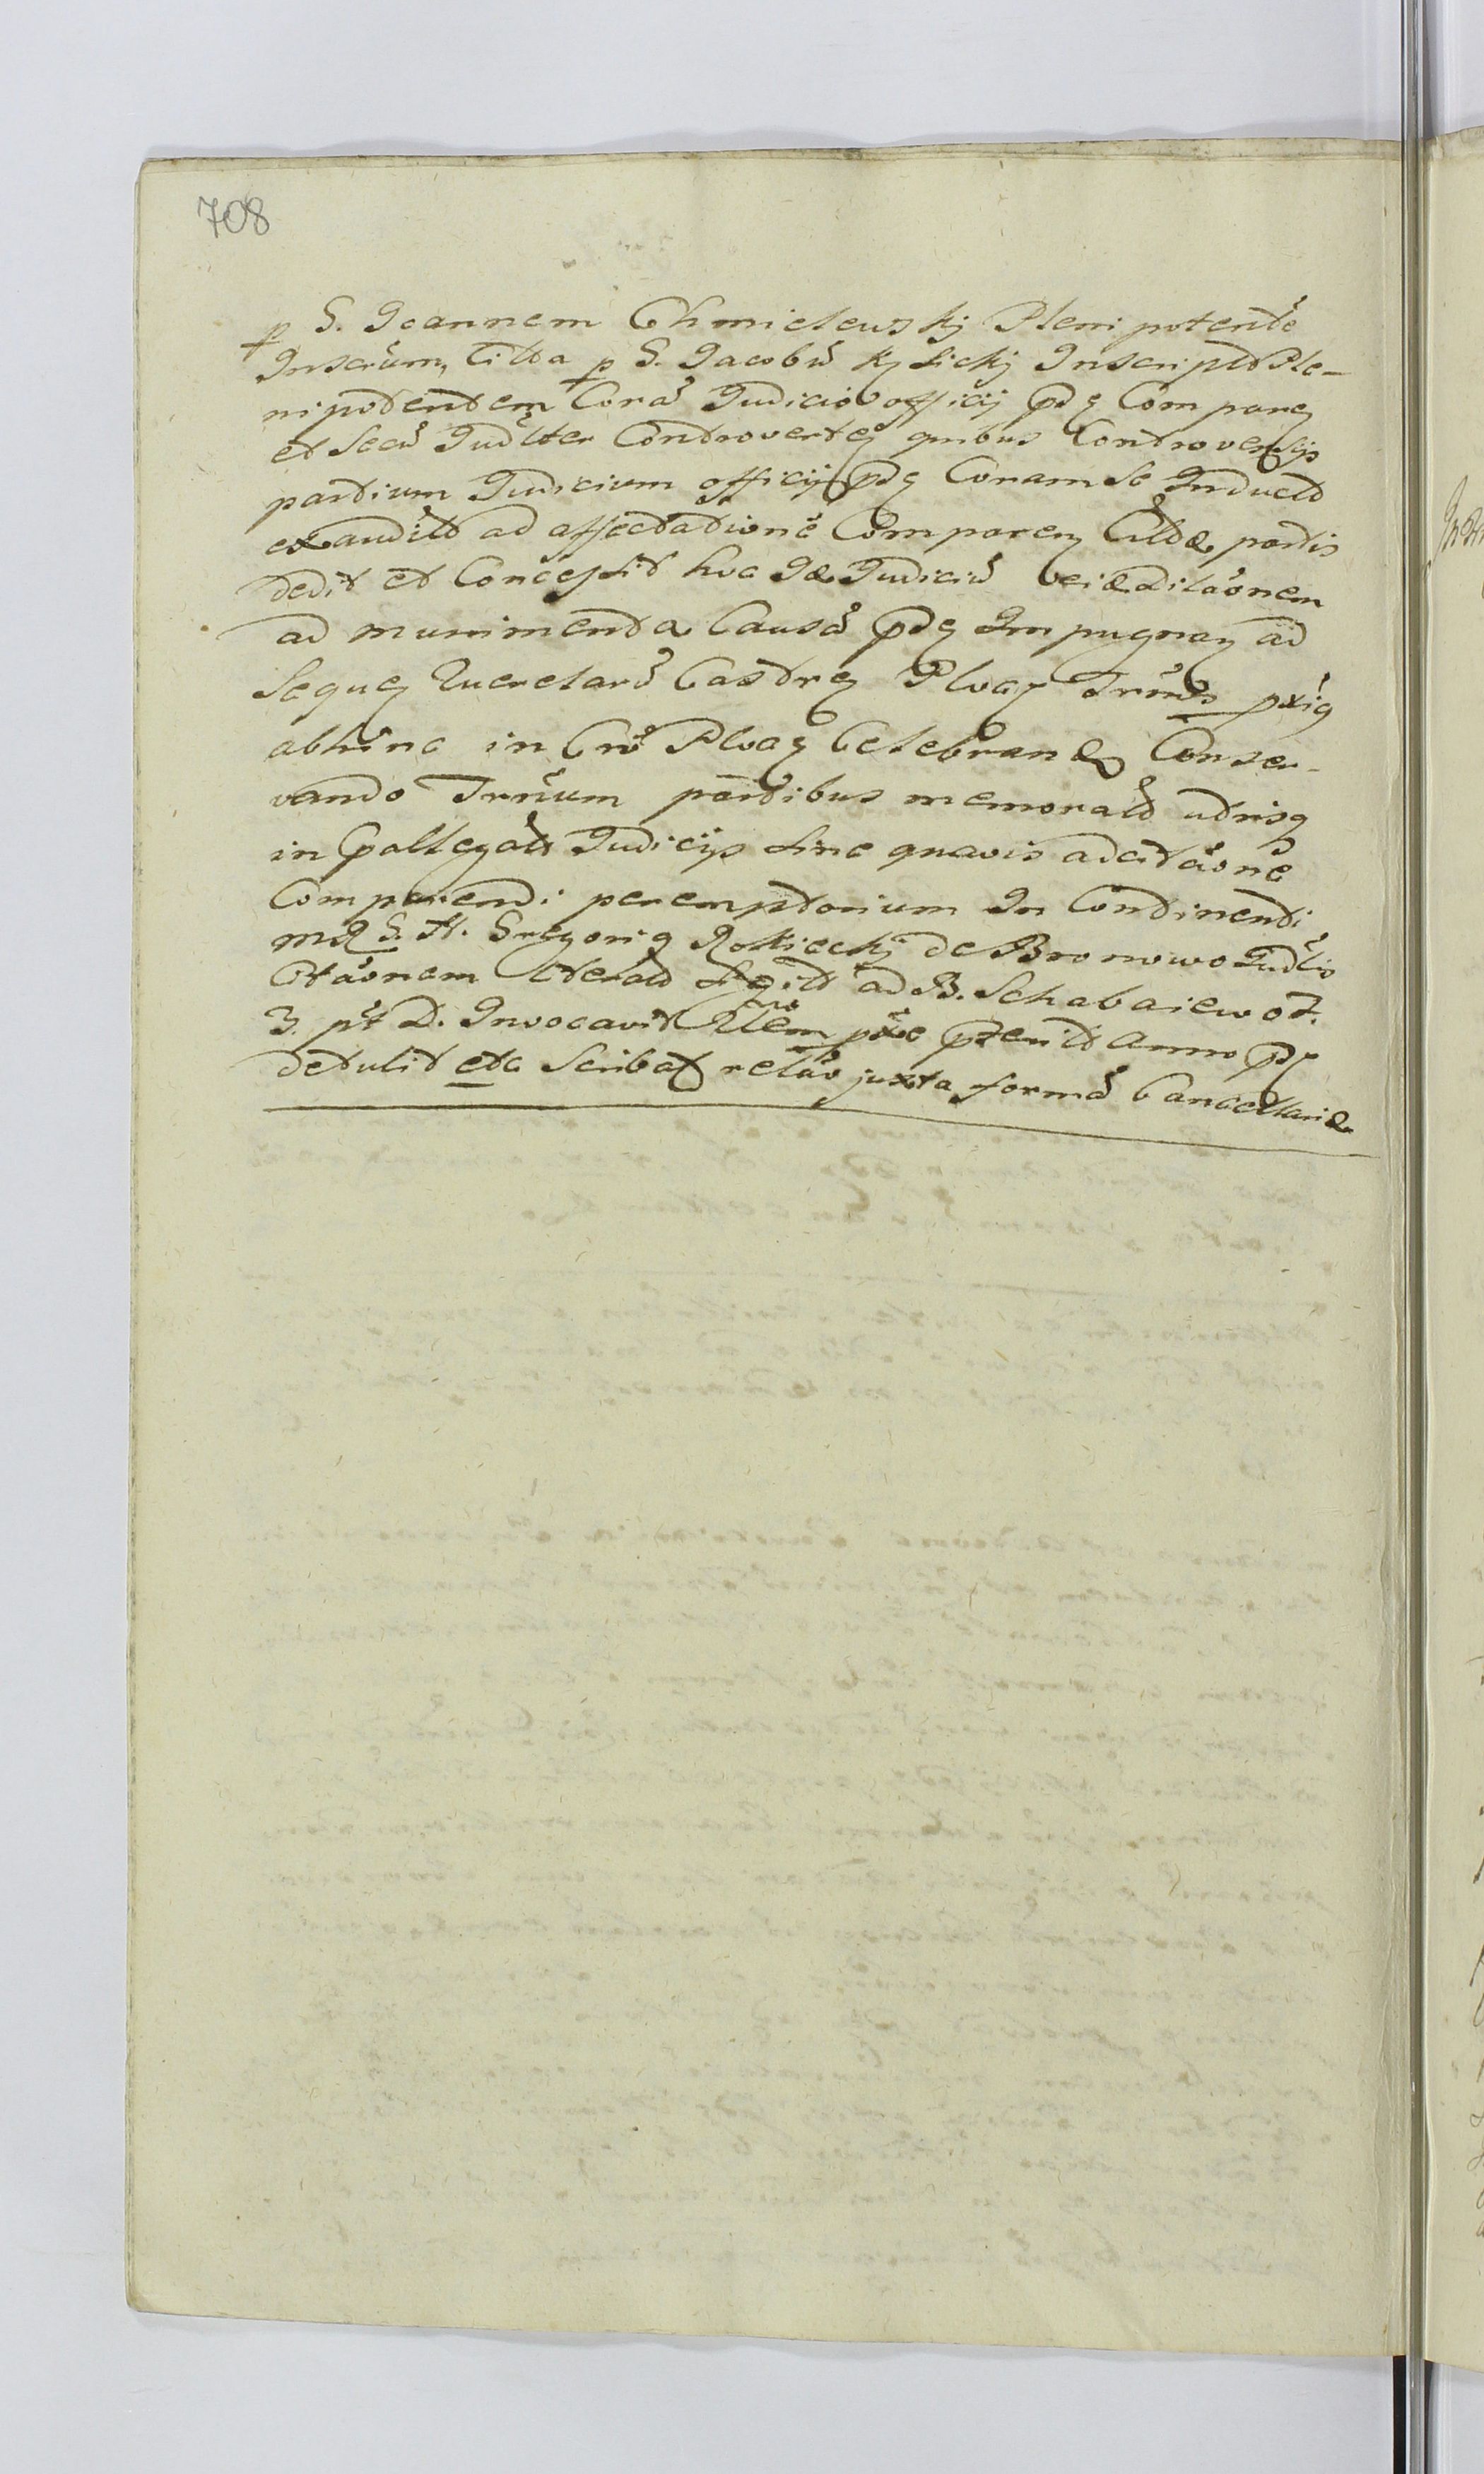 708
p S. Joannem Chmielewskj Plenipotentē
Inscrūm, Citta p S. Jacobū Kęsickj Inscriptt Ple-
nipotentem Corā Judicio officij pdę Compareę
et Secū Judlter Controverteę quibus Controversijs
partium Judicium officij pdę Coram se Induct
exaudit ad affectationē Compareę Cittæ partis
dedit et Concessit hoc Judiciū dilāonem
ad munimenta Causā pdę Impugnaę ad
Sequeę Querelarū Castreę Ploceę Trmis pxię
abhinc in Crō Ploceę Celebrand Conser-
vando Trnum partibus memorat utrisq
in Judicijs sine quavis adcitāone
Comparendi peremptorium In Continenti
S. H. Gregorig Rokickj de Bronowo Judlis
Citāonem ad B. Schabaiewo f.
3. pt D. Invocavit pxe pterit Anno pdę
detulit etc Scribat relāo juxta formā Cancellariæ